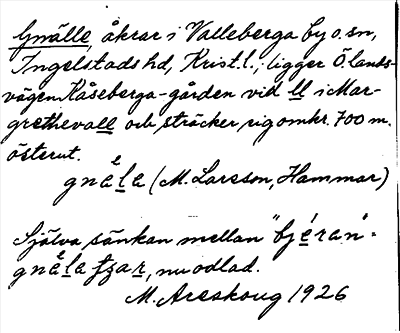 Gnälle, åkrar i Valleberga by o. sn,
Ingelstads hd, Krist. l.; ligger Ö. lands-
vägen Kåseberga-gården vid ll i Mar-
grethevall och sträcker sig omkr. 700 m.
österut.
gnäla (M. Larsson, Hammar)
Själva sänkan mellan "bjéran"=
gnäla fzar, nu odlad.
M. Areskoug 1926